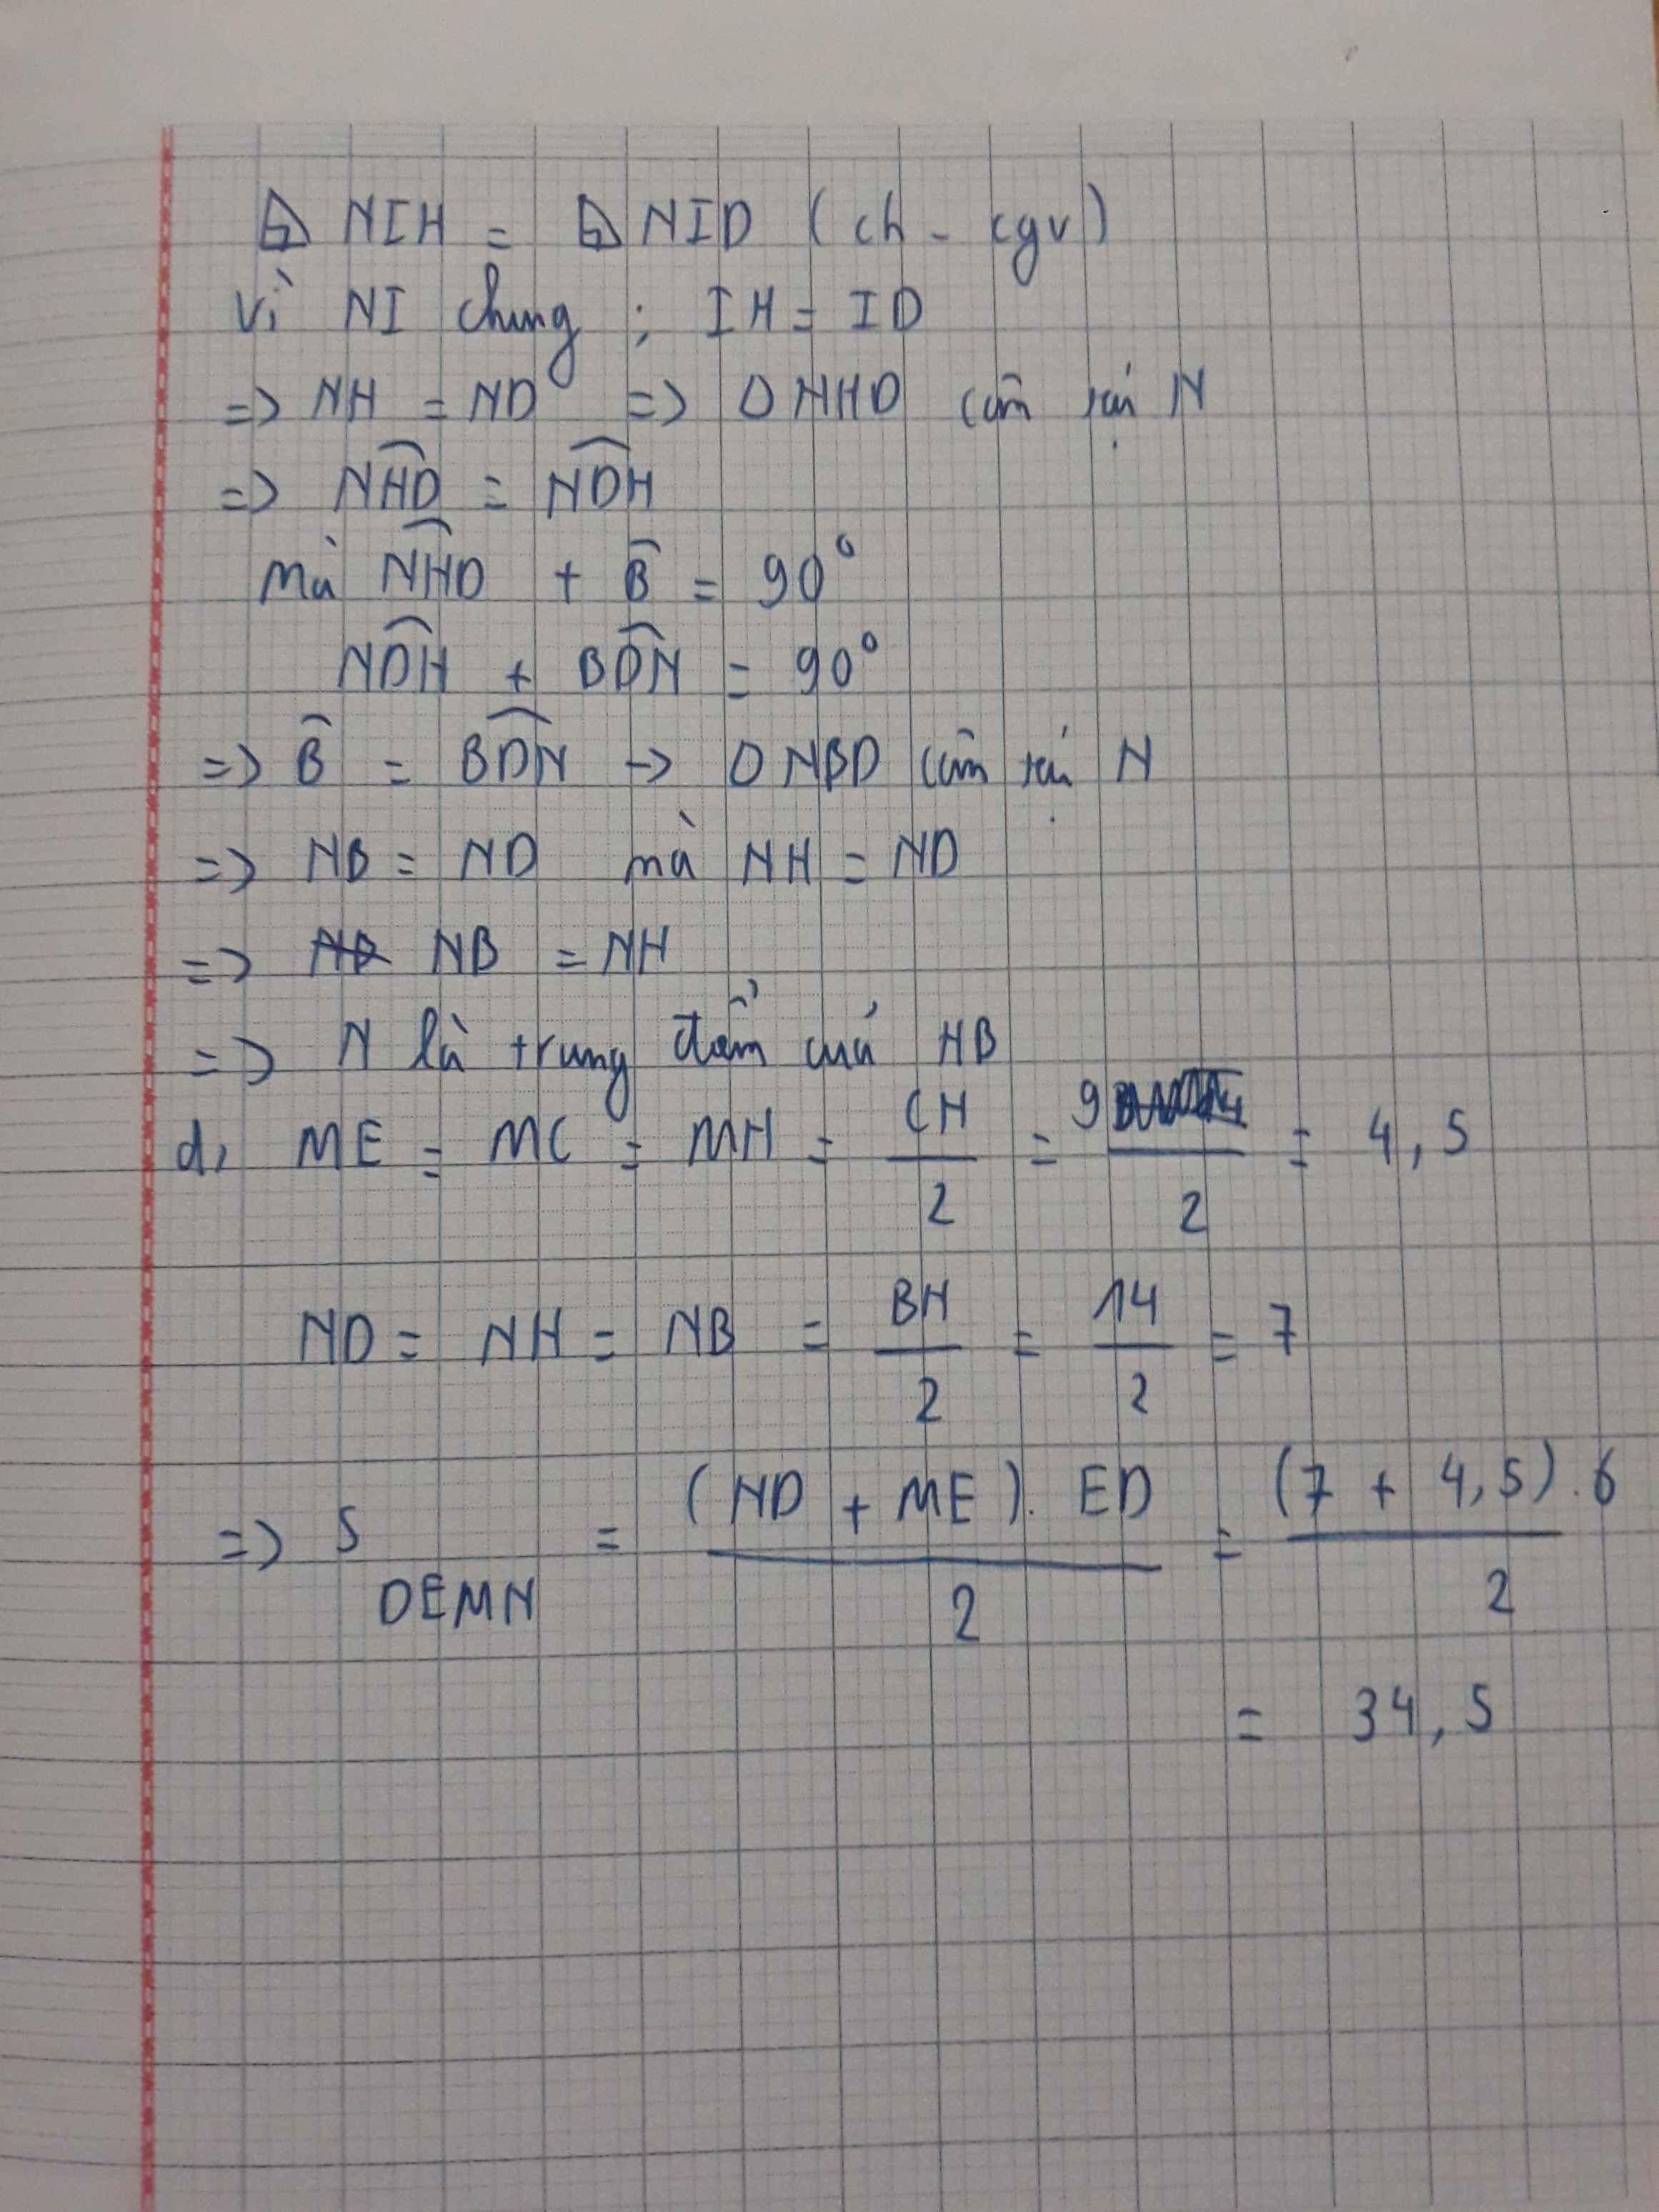 △ NIH = △ NID (ch - cgv)
Vì NI chung ; IH = ID
=> NH = ND => △ NHD cân tại N
=> NHD = NDH
mà NHD + B = 90°
NDH + BDN = 90°
=> B = BDN -> △ NBD cân tại N
=> NB = ND mà NH = ND
=> NB = NH
=> N là trung điểm của HB
d, ME = MC = MH = CH/2 = 9/2 = 4,5
ND = NH = NB = BH/2 = 14/2 = 7
=> S DEMN = (ND + ME). ED/2 = (7 + 4,5).6/2
= 34,5